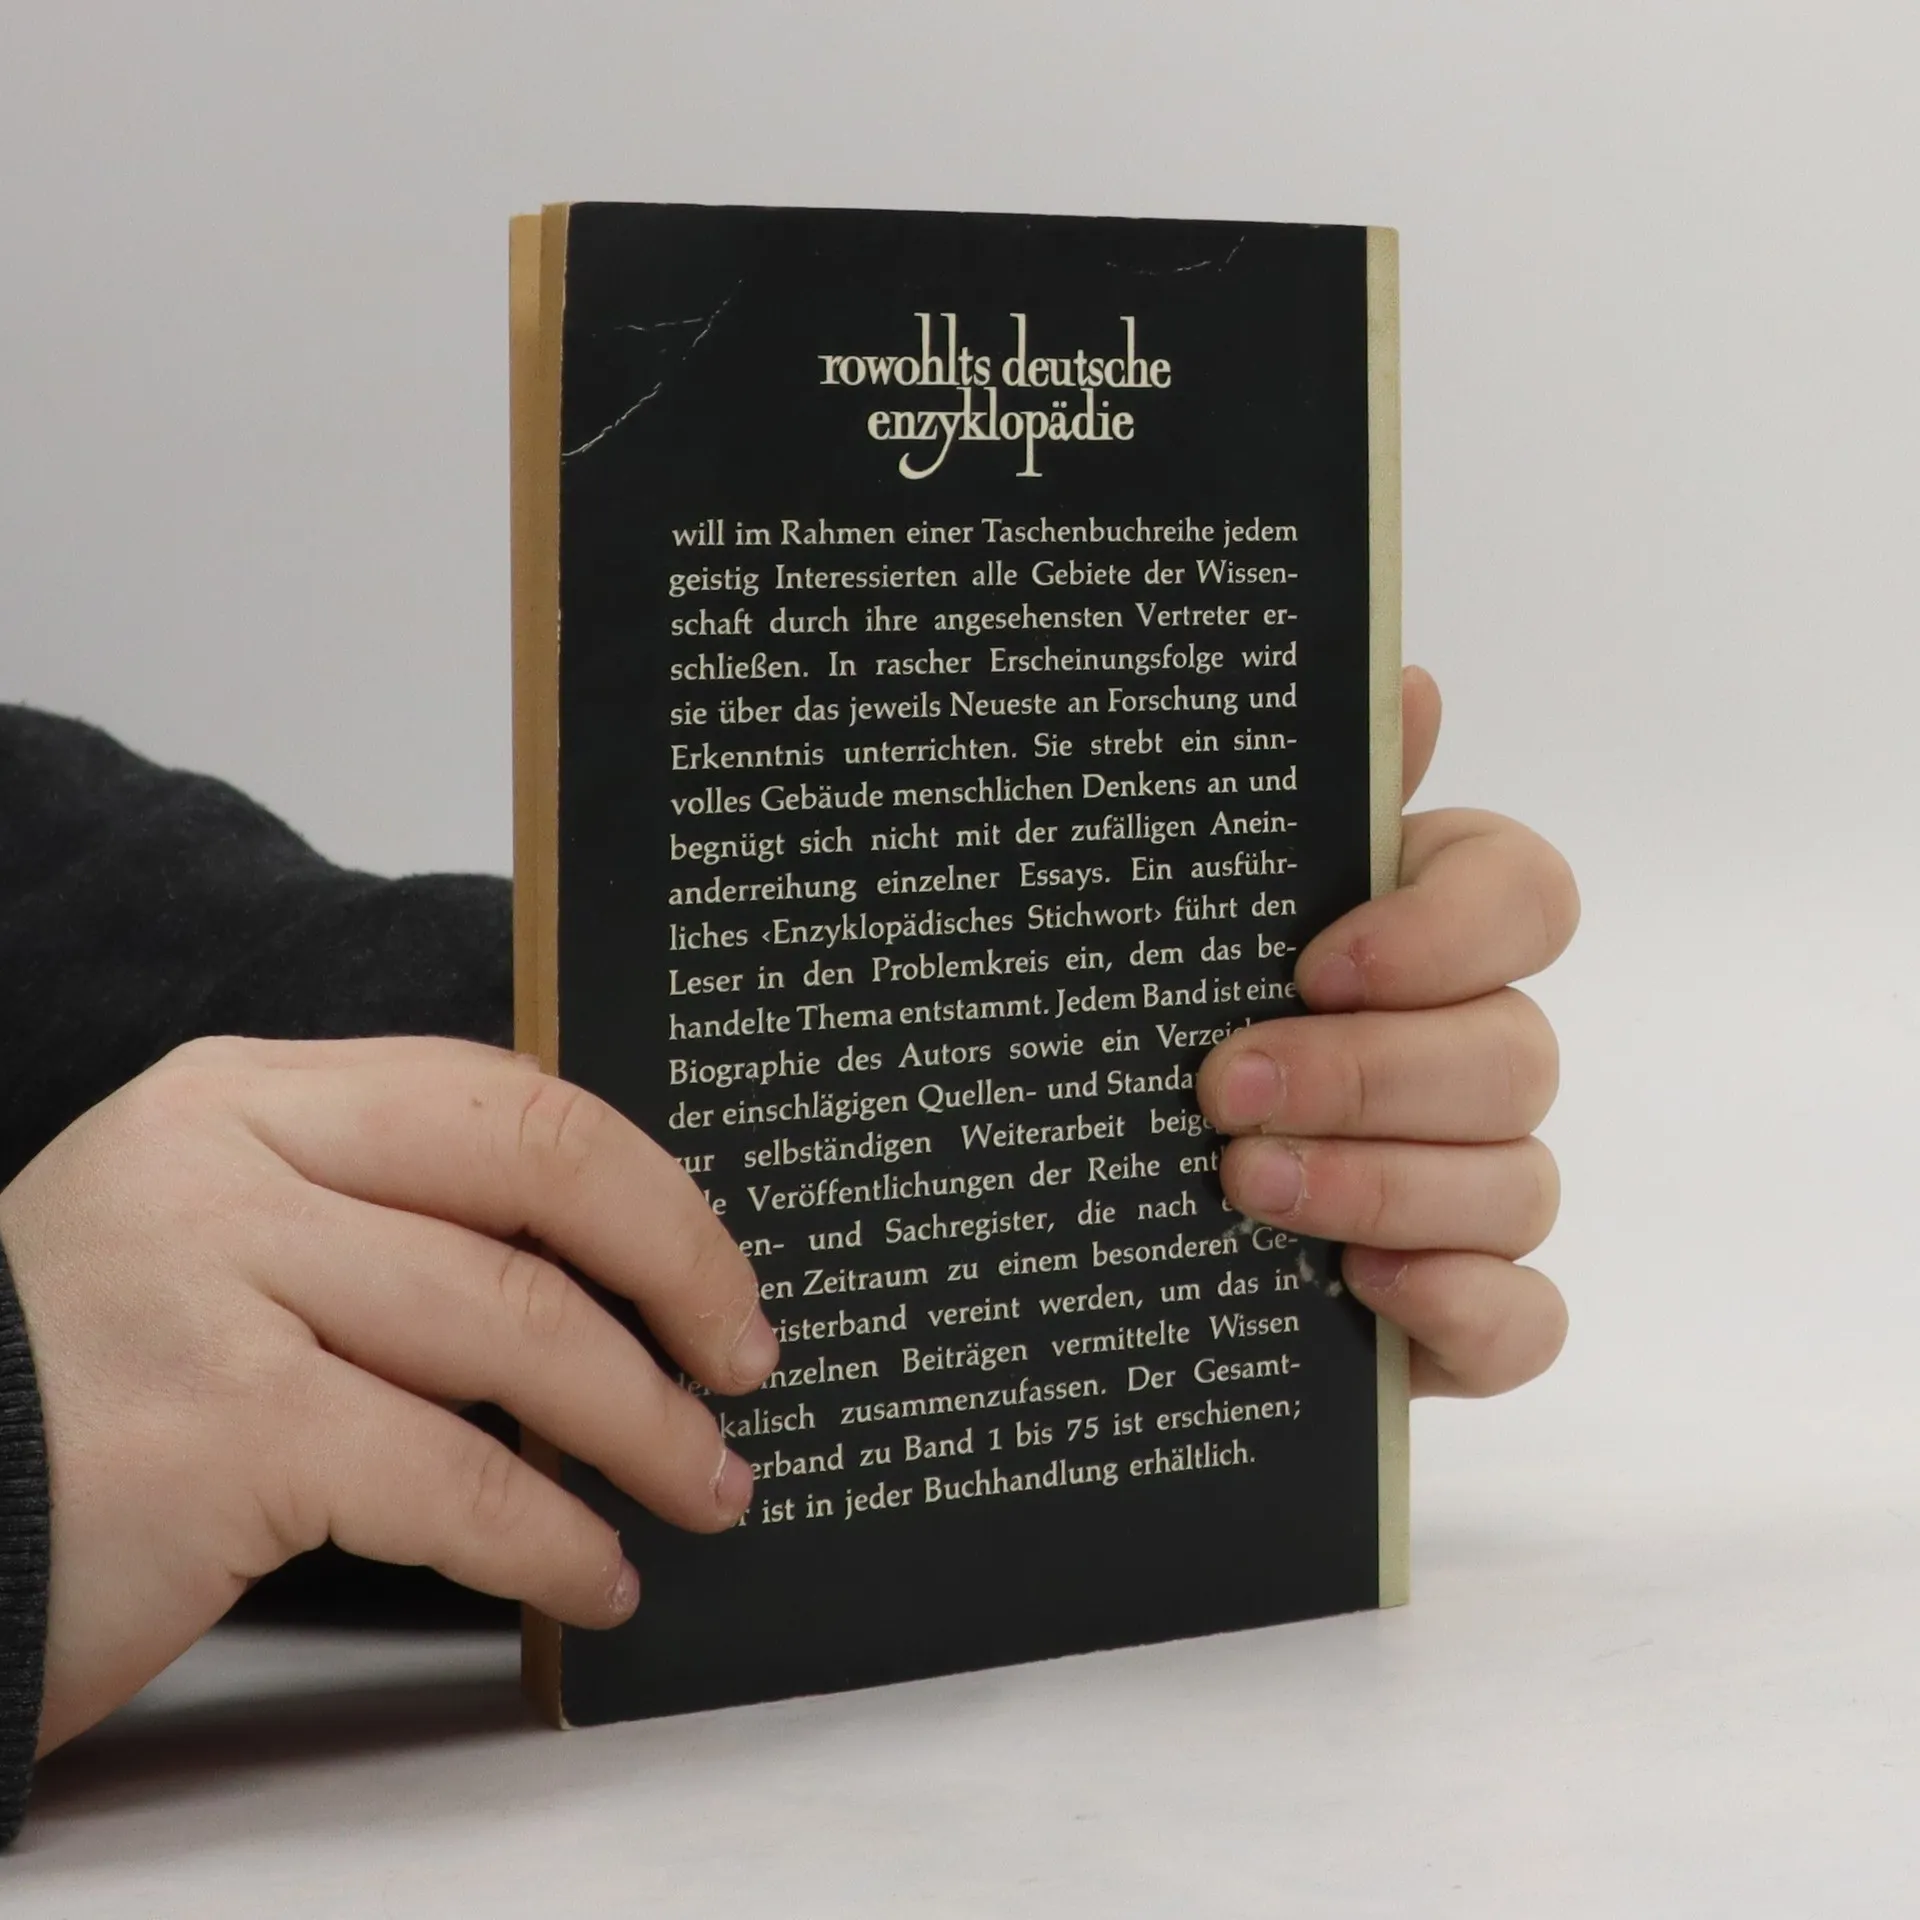 rowohlts deutsche
enzyklopädie
will im Rahmen einer Taschenbuchreihe jedem
geistig Interessierten alle Gebiete der Wissen-
schaft durch ihre angesehensten Vertreter er-
schließen. In rascher Erscheinungsfolge wird
sie über das jeweils Neueste an Forschung und
Erkenntnis unterrichten. Sie strebt ein sinn-
volles Gebäude menschlichen Denkens an und
begnügt sich nicht mit der zufälligen Anein-
anderreihung einzelner Essays. Ein ausführ-
liches ‹Enzyklopädisches Stichwort› führt den
Leser in den Problemkreis ein, dem das be-
handelte Thema entstammt. Jedem Band ist eine
Biographie des Autors sowie ein
der einschlägigen Quellen- und
selbständigen Weiterarbeit
Veröffentlichungen der Reihe
und Sachregister, die nach
Zeitraum zu einem besonderen Ge-
vereint werden, um das in
Beiträgen vermittelte Wissen
zusammenzufassen. Der Gesamt-
zu Band 1 bis 75 ist erschienen;
ist in jeder Buchhandlung erhältlich.